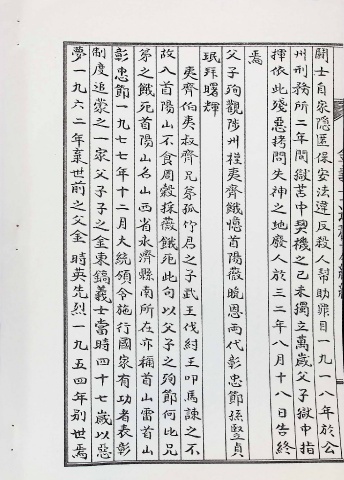 鬪士自家隱匿保安法違反殺人幇助罪目一九一八年於公
州刑務所二年間獄苦中契機之己未獨立萬歲父子獄中指
揮依此殘惡拷問失神之地廢人於三二年八月十八日告終
焉
父子殉觀陟州樣夷齊餓憶首陽薇晚恩兩代彰忠節孫竪貞
珉拜曙輝
夷齊伯夷叔齊兄弟孤竹君之子武王伐紂王叩馬諫之不
故入首陽山不食周穀採薇餓死此句以父子之殉節何比兄
弟之餓死首陽山名山西省永濟縣南所在亦稱首山雷首山
彰忠節一九七七年十二月大統領令施行國家有功者表彰
制度追蒙之一家父子子之金東鎬義士當時四十七歲以惡
夢一九六二年棄世前之父金 時英先烈一九五四年別世焉